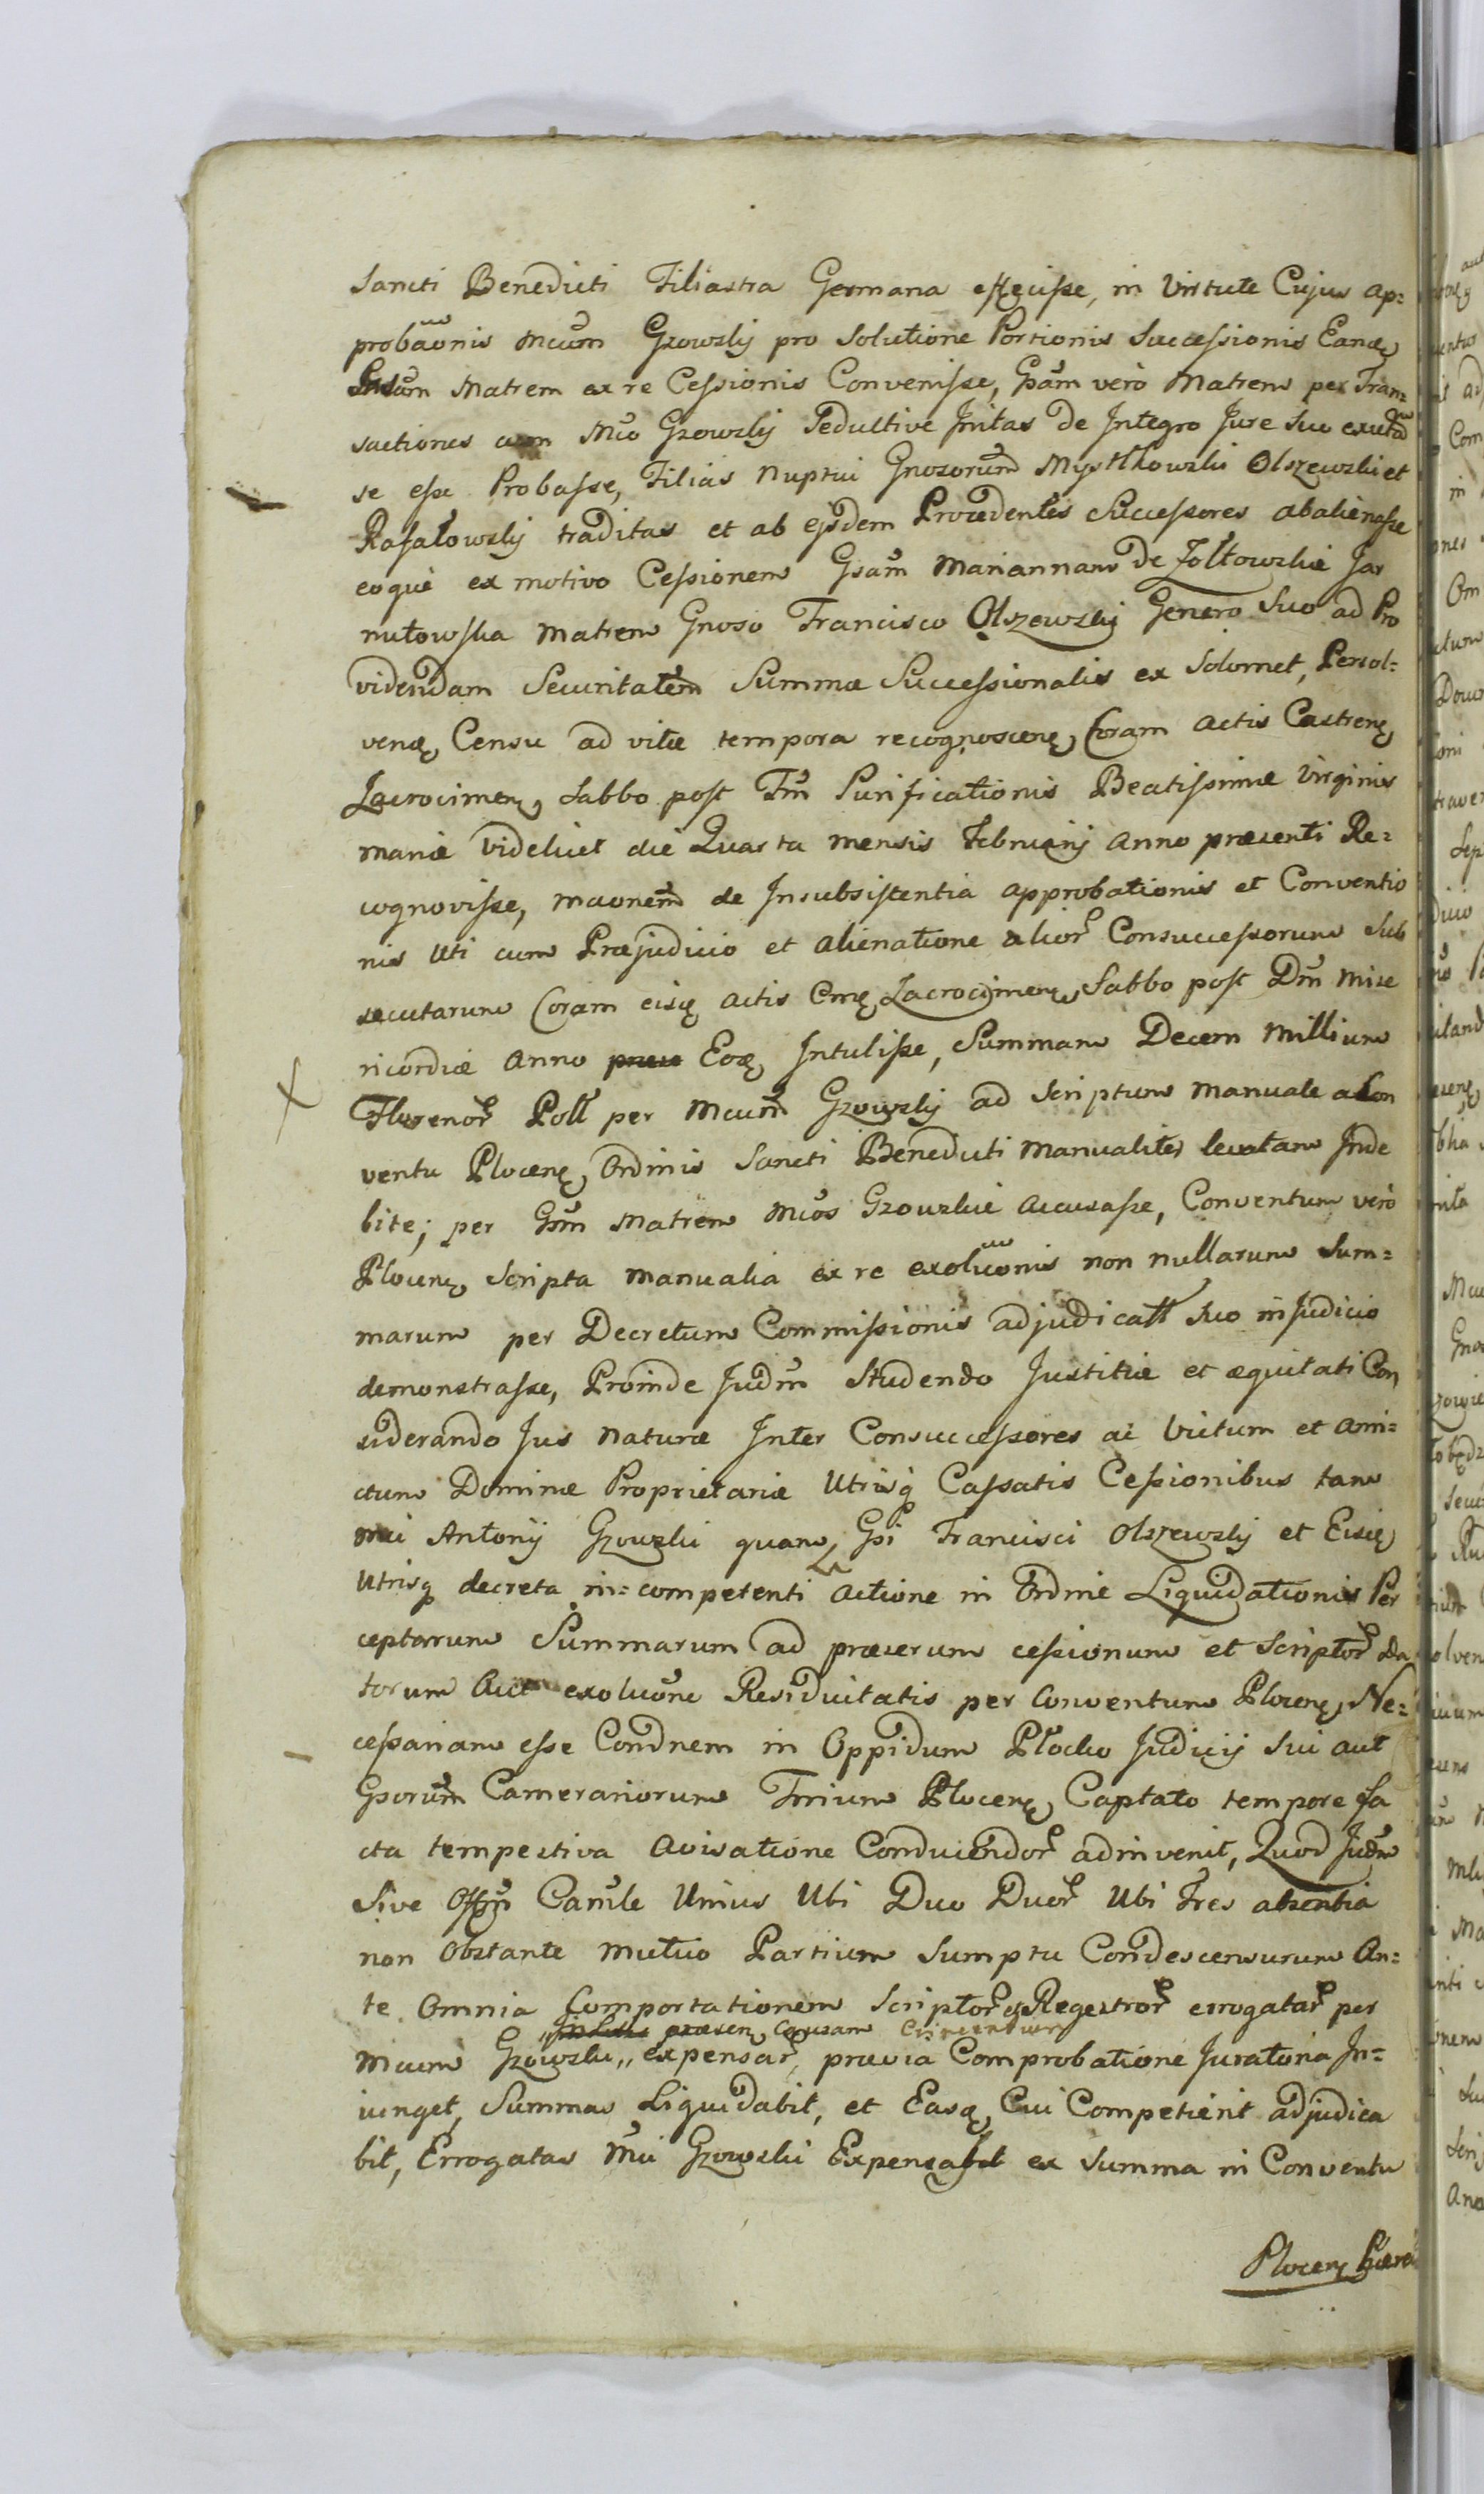 Sancti Benedicti Filiastra Germana effecisse, in Virtute Cujus ap=
probãonis Mcum Gzowskij pro Solutione Portionis Successionis Eandę
Gnsam Matrem ex re Cessionis Convenisse, Gsam verò Matrem per Tran=
sactiones cum Mco Gzowskij Seductive Initas de Integro Jure Suo exutã
se esse Probasse, Filias Nuptui Gnosorum Mystkowski Olszewski et
Rafałowskij traditas et ab ejsdem Procedentes Successores abalienasse
eoque ex motivo Cessionem Gsam Mariannam de Zołtowskie Jar
nutowska Matrem Gnoso Francisco Olszewskij Genero Suo ad Pro
videndam Securitatem Summæ Successionalis ex Solomet, Persol=
venę, Censu ad vitæ tempora recognoscenę, Coram actis Castrenę
Zacrocimenę, Sabbo post Fm Purificationis Beatissimæ Virginis
Mariæ Videlicet die Quarta mensis Februarij Anno præsenti Re=
cognovisse, mconem de Insubsistentia approbationis et Conventio
nis Uti cum Præjudicio et alienatione alior Consuccessorum Sub
secutarum Coram eisę actis Cmę Zacrocimenę, Sabbo post Dm Mise
ricordiæ Anno Eoę Intulisse, Summam Decem Millium
Florenor Poll per Mcum Gzowskij ad Scriptum Manuale a Con
ventu Plocenę, Ordinis Sancti Benedicti Manualiter levatam Inde
bite; per Gsm Matrem Mcos Gzowskie Accusasse, Conventum verò
Plocenę, Scripta Manualia ex re exoluonis non nullarum Sum=
marum per Decretum Commissionis adjudicatt Suo in Judicio
demonstrasse, Proinde Judm Studendo Justitiæ et æquitati Con
siderando Jus Naturæ Inter Consuccessores ac Victum et Ami=
ctum Dominæ Proprietariæ Utrisq Cassatis Cessionibus tam
Mci Antonij Gzowski quam Gsi Francisci Olszewskij et Eisię
Utrisq decreta in=competenti Actione in Ordine Liquidationis Per
ceptarum Summarum ad præserum cessionum et Scriptor da
torum Aut exoluone Residuitatis per Conventum Plocenę, Ne=
cessariam esse Condnem in Oppidum Płocko Judicij Sui aut
Gsorum Camerariorum Trium Plocenę, Captato tempore fa
cta tempestiva Avisatione Conducendor adinvenit, Quod Judm
Sive Offm Camle Unius Ubi Duo Duor Ubi Tres absentia
non Obstante mutuo Partium Sumptu Condescensurum An=
te Omnia Comportationem Scriptor et Regestror errogatar per
præsenę Causam
Mcum Gzowski,, expensar, prævia Comprobatione Juratoria In=
iunget, Summas Liquidabit, et Easę, Cui Competierit adjudica
bit, Errogatas Mci Gzowski Expensas ex Summa in Conventu
Plocenę